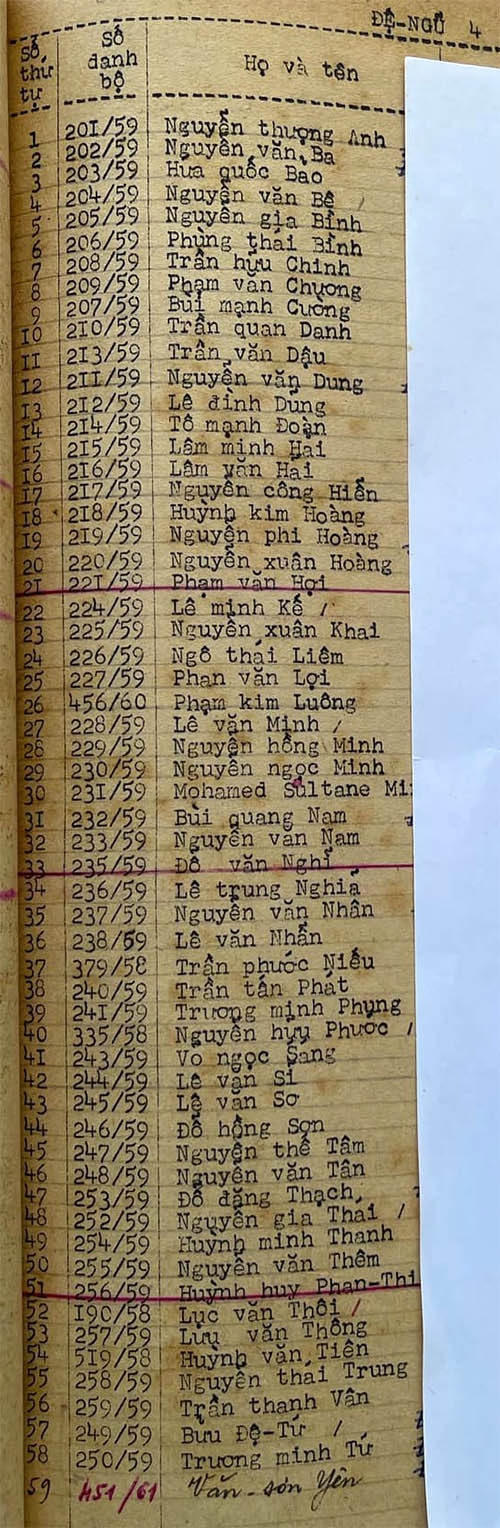 ĐỆ-NGŨ 4
Số thứ tự Số danh bộ Họ và tên
1 201/59 Nguyễn thượng Anh
2 202/59 Nguyễn văn Ba
3 203/59 Hứa quốc Bảo
4 204/59 Nguyễn văn Bê /
5 205/59 Nguyễn gia Bình
6 206/59 Phùng thái Bình
7 208/59 Trần hữu Chinh
8 209/59 Phạm văn Chương
9 207/59 Bùi mạnh Cường
10 210/59 Trần quan Danh
11 213/59 Trần văn Dậu
12 211/59 Nguyễn văn Dung
13 212/59 Lê đình Dũng
14 214/59 Tô mạnh Đoàn
15 215/59 Lâm minh Hải
16 216/59 Lâm văn Hải
17 217/59 Nguyễn công Hiến
18 218/59 Huỳnh kim Hoàng
19 219/59 Nguyễn phi Hoàng
20 220/59 Nguyễn xuân Hoàng
21 221/59 Phạm văn Hợi
22 224/59 Lê minh Kế /
23 225/59 Nguyễn xuân Khai
24 226/59 Ngô thái Liêm
25 227/59 Phan văn Lợi
26 456/60 Phạm kim Luông
27 228/59 Lê văn Minh /
28 229/59 Nguyễn hồng Minh
29 230/59 Nguyễn ngọc Minh
30 231/59 Mohamed Sultane Mi
31 232/59 Bùi quang Nam
32 233/59 Nguyễn văn Nam
33 235/59 Đỗ văn Nghỉ
34 236/59 Lê trung Nghĩa
35 237/59 Nguyễn văn Nhân
36 238/59 Lê văn Nhẫn
37 379/58 Trần phước Niếu
38 240/59 Trần tấn Phát
39 241/59 Trương minh Phụng
40 335/58 Nguyễn hữu Phước /
41 243/59 Võ ngọc Sang
42 244/59 Lê văn Sĩ
43 245/59 Lê văn Sơ
44 246/59 Đỗ hồng Sơn
45 247/59 Nguyễn thế Tâm
46 248/59 Nguyễn văn Tân
47 253/59 Đỗ đăng Thạch
48 252/59 Nguyễn gia Thái /
49 254/59 Huỳnh minh Thanh
50 255/59 Nguyễn văn Thêm
51 256/59 Huỳnh huy Phan-Thi
52 190/58 Lục văn Thôi /
53 257/59 Lưu văn Thông
54 519/58 Huỳnh văn Tiên
55 258/59 Nguyễn thái Trung
56 259/59 Trần thanh Vân
57 249/59 Bửu Đệ-Tứ /
58 250/59 Trương minh Tứ
59 451/61 Văn-sơn Yên